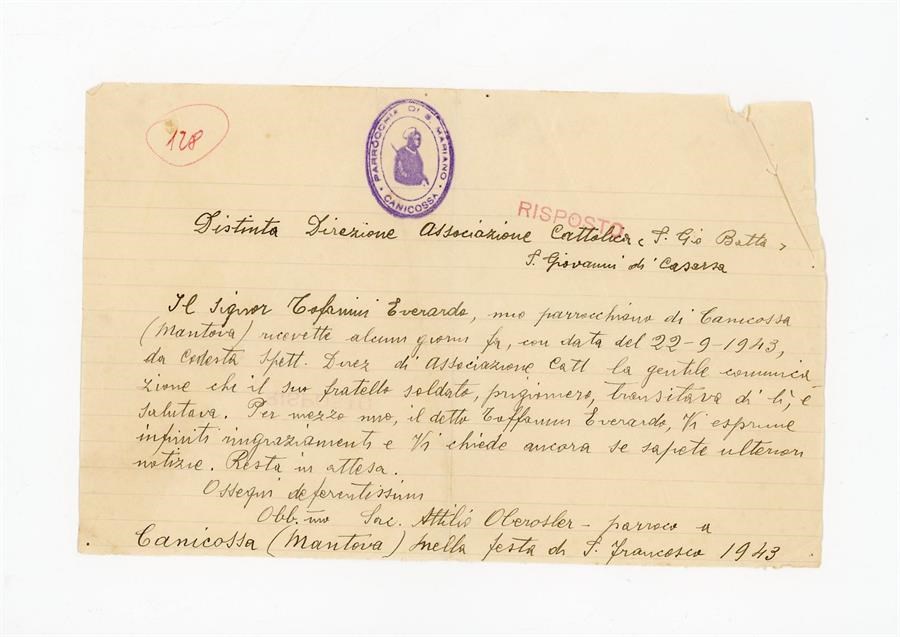 128
PARROCCHIA DI S. MARIANO
CANICOSSA
RISPOSTO
Distinta Direzione Associazione Cattolica "S. Gio Batta"
S. Giovanni di Casarsa
Il Signor Tofanini Everardo, mio parrocchiano di Canicossa
(Mantova) ricevette alcuni giorni fa, con data del 22-9-1943,
da Codesta Spett. Direz di Associazione Catt la gentile comunica
zione che il suo fratello soldato, prigioniero, transitava di lì, e
salutava. Per mezzo mio, il detto Toffanini Everardo, Vi esprime
infiniti ringraziamenti e Vi chiede ancora se sapete ulteriori
notizie. Resta in attesa.
Ossequi deferentissimi
Obb.mo Sac. Attilio Oberosler - parroco a
Canicossa (Mantova) nella festa di S. Francesco 1943